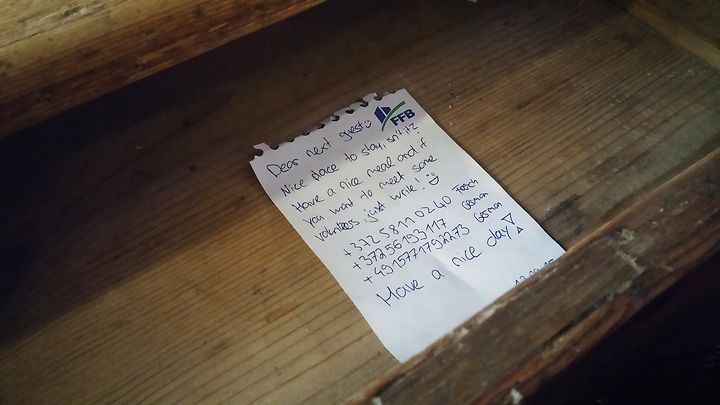 FFB
Dear next guest :)
Nice place to stay, isn't it?
Have a nice meal and if
you want to meet some
volunteers just write! :)
+372 58110240 French
+37256193117 German
+4915771792273 German
Have a nice day